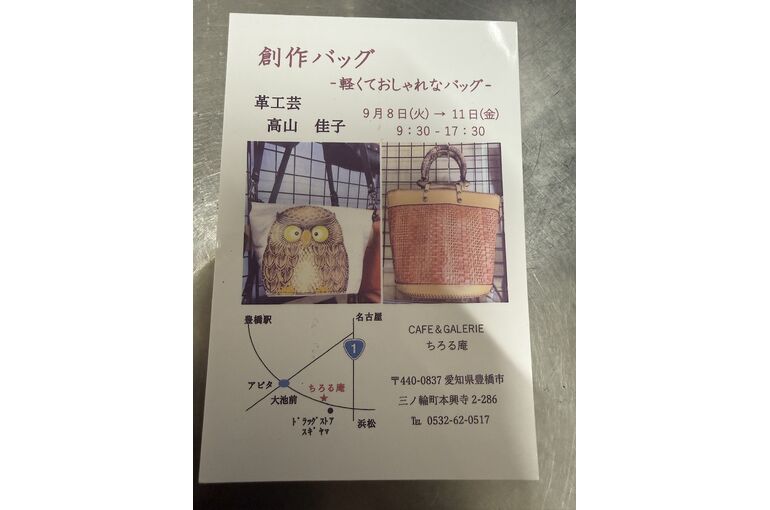 創作バッグ
-軽くておしゃれなバッグ-
革工芸
高山 佳子
9月8日(火) → 11日(金)
9：30 - 17：30
豊橋駅
名古屋
1
アピタ
大池前
ちろる庵
★
ﾄﾞﾗｯｸﾞｽﾄｱ
ｽｷﾞﾔﾏ
浜松
CAFE＆GALERIE
ちろる庵
〒440-0837 愛知県豊橋市
三ノ輪町本興寺 2-286
℡ 0532-62-0517